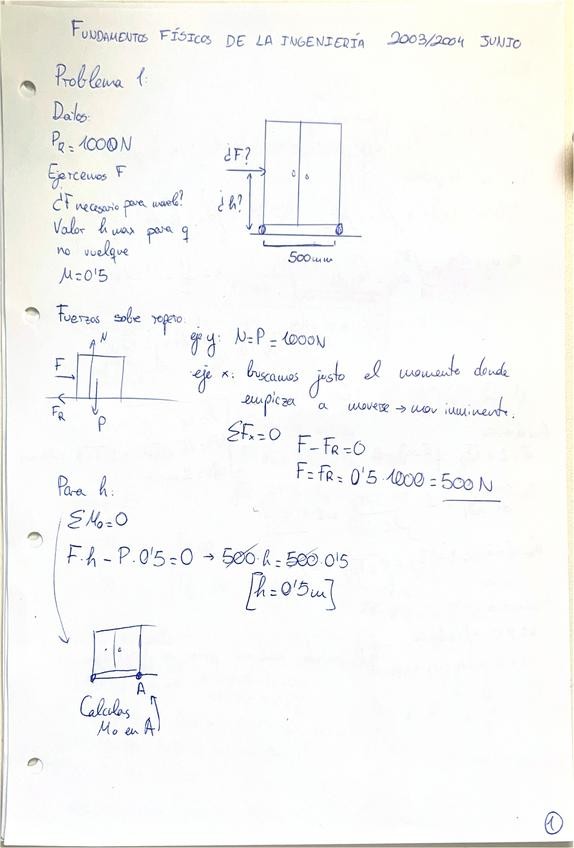 FUNDAMENTOS FÍSICOS DE LA INGENIERÍA 2003/2004 JUNIO
Problema 1:
Datos:
PR = 1000N
Ejercemos F
¿F necesario para moverlo?
Valor h max para q
no vuelque
M = 0'5
¿F?
¿h?
500mm
Fuerzas sobre ropero:
N
F
FR
P
eje y: N = P = 1000N
eje x: buscamos justo el momento donde
empieza a moverse → mov inminente.
ΣFx = 0
F - FR = 0
F = FR = 0'5 · 1000 = 500 N
Para h:
ΣMo = 0
F · h - P · 0'5 = 0 → 500 · h = 500 · 0'5
[h = 0'5m]
A
Calculas
Mo en A
1